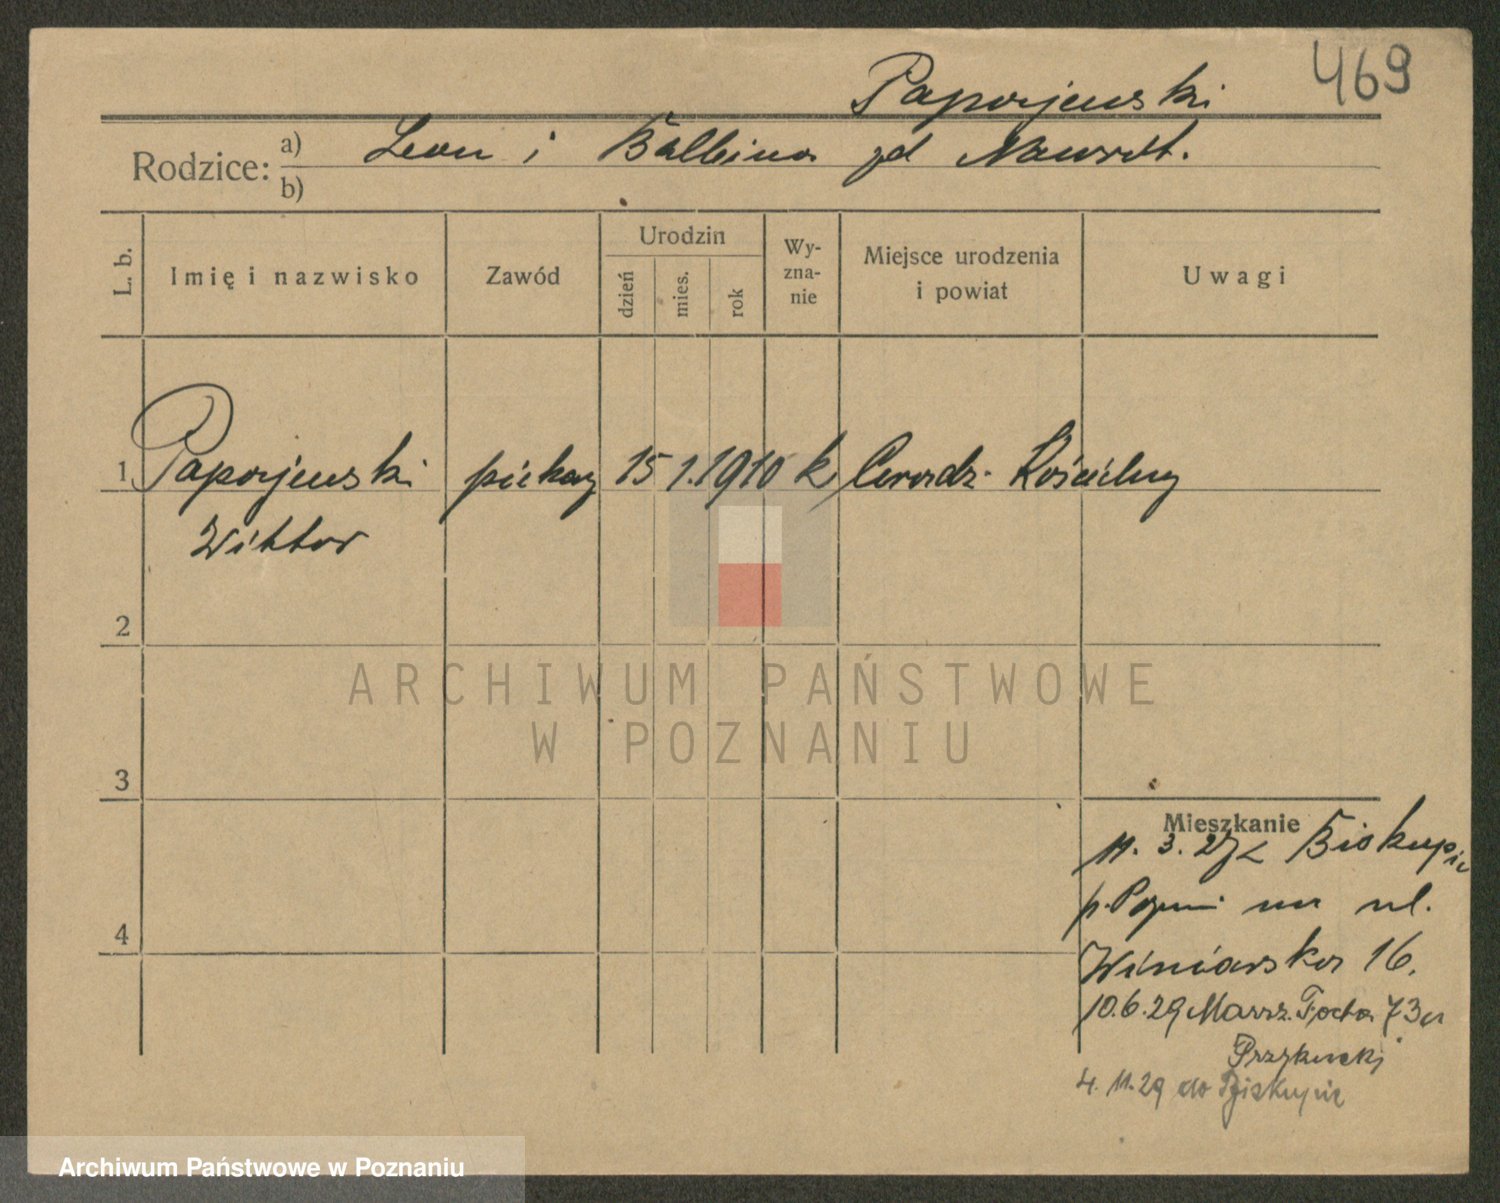 469
Paporjewski
Rodzice: a) Leon i Balbina zd Nawrot.
b)
L. b. Imię i nazwisko Zawód Urodzin dzień mies. rok Wy-zna-nie Miejsce urodzenia i powiat Uwagi
1 Paporjewski piekarz 15 1. 1910 k Ceradz Kościelny
Wiktor
2
ARCHIWUM PAŃSTWOWE
W POZNANIU
3
Mieszkanie
11. 3. 27 z Biskupic
p. Pozn. na ul.
Winiarska 16.
10.6.29 Marsz. Focha 73
4
4. 11. 29 do Biskupic
Archiwum Państwowe w Poznaniu